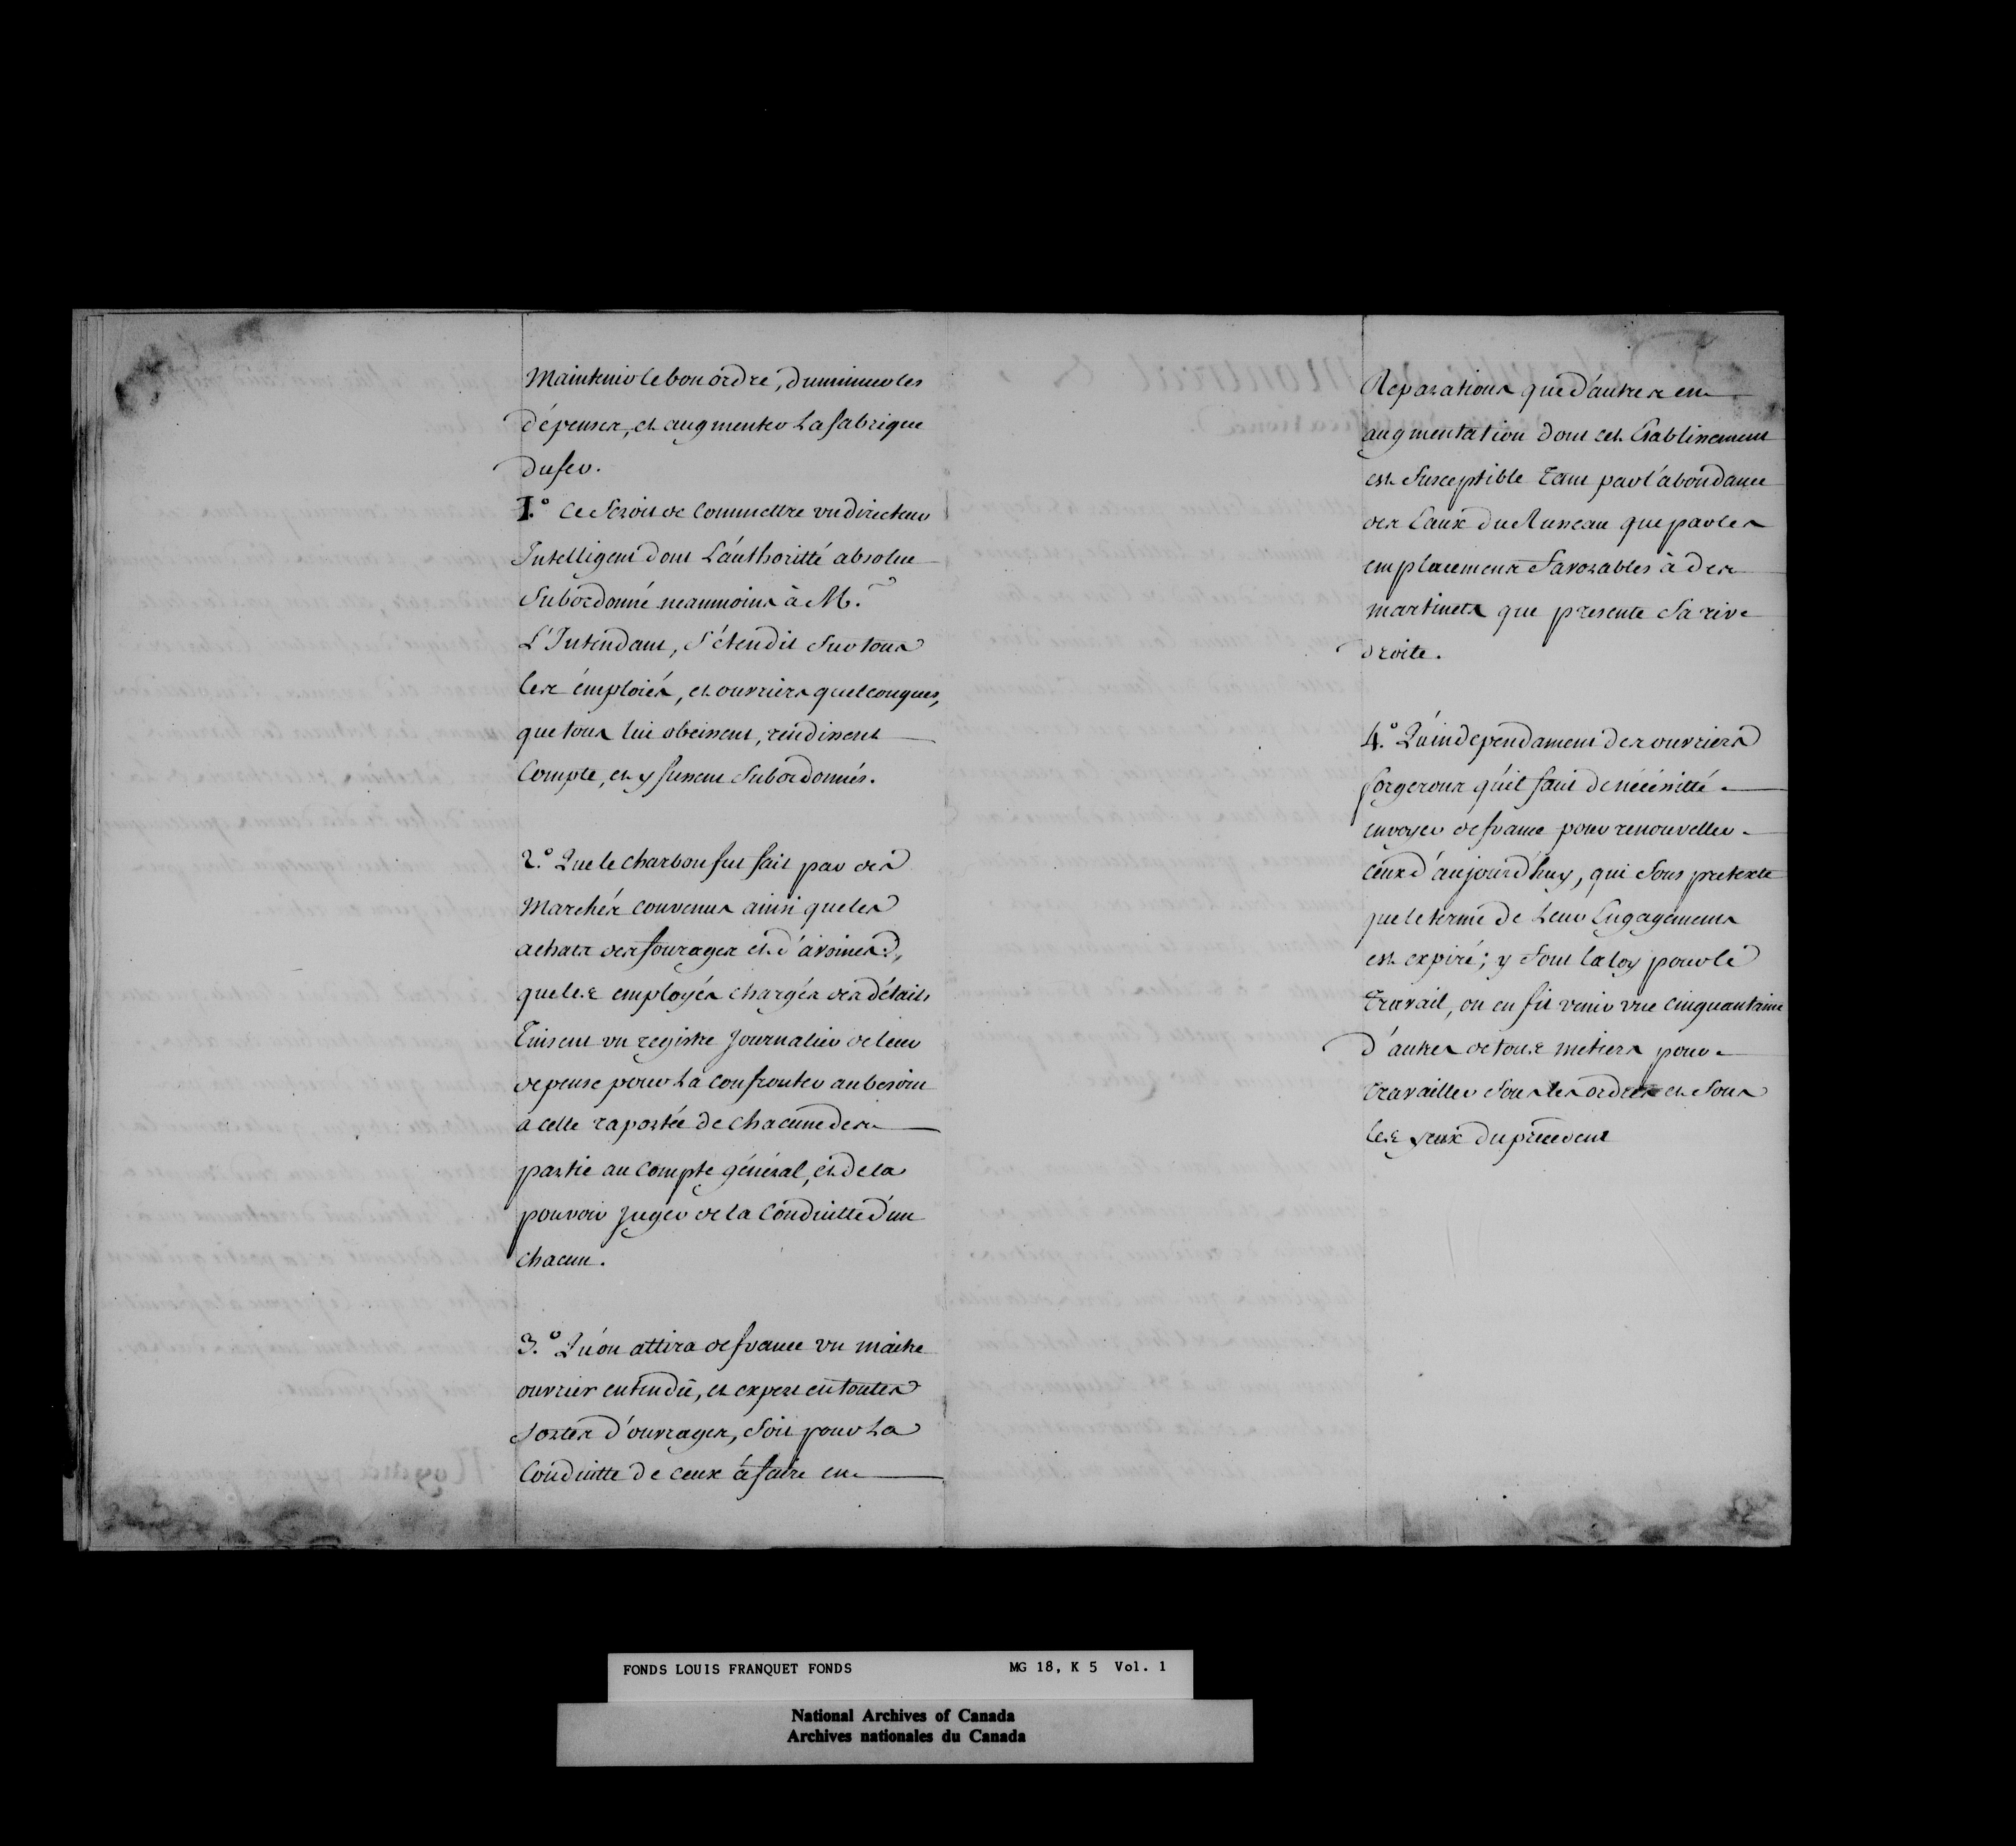 Maintenir le bon ordre, diminuer les
dépenses, et augmenter La fabrique
du fer.
1.° Ce Seroit de Commettre un directeur
Intelligent dont L'authoritté absolue
Subordonné neanmoins à M.r
L'Intendant, S'étendit Sur tous
les émploiés, et ouvriers quelconques,
que tous lui obeissent, rendissent
Compte, et y fussent Subordonnés.
2.° Que le charbon fut fait par des
Marchés convenus ainsi que les
achats des fourages et d'avoines,
que les employés chargés des détails
Tinsent un registre Journalier de leur
depense pour La confronter au besoin
a celle raportée de chacune des
partie au Compte général, et de la
pouvoir Juger de la Conduitte d'un
chacun.
3.° Qu'on attira de france un maitre
ouvrier entendû, et expert en toutes
Sortes d'ouvrages, Soit pour La
Conduitte de ceux à faire en
Reparations que d'autres en
augmentation dont cet Etablissement
est Susceptible Tant par l'abondance
des Eaux du Ruisseau que par les
emplacements Favorables à des
martinets que presente Sa rive
droite.
4.° Qu'independament des ouvriers
forgerons qu'il faut de nécéssitté
envoyer de france pour renouveller
ceux d'aujourd'huy, qui Sous pretexte
que le terme de Leur Engagements
est expiré; y font la loy pour le
Travail, on en fit venir une Cinquantaine
d'autres de tous metiers pour
travailler Sous les ordres et Sous
les yeux du précedent
FONDS LOUIS FRANQUET FONDS MG 18, K 5 Vol. 1
National Archives of Canada
Archives nationales du Canada